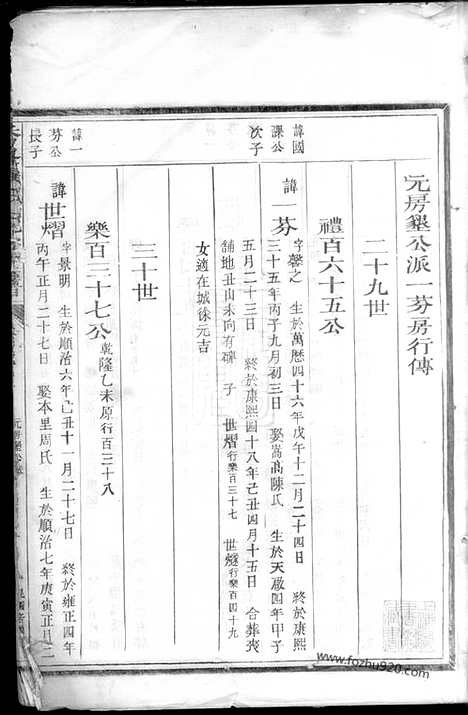 元房墾公派一芬房行傳
二十九世
禮百六十五公
諱國
諜公
次子
諱一芬 字馨之 生於萬曆四十六年戊午十二月二十四日 終於康熙
三十五年丙子九月初三日 娶嵩高陳氏 生於天啟四年甲子
五月二十三日 終於康熙四十八年己丑四月十五日 合葬
舖地丑山未向有碑 子 世熠行樂百三十七 世燧行樂百四十九
女適在城徐元吉
三十世
樂百二十七公乾隆乙未原行百三十八
諱一
芬公
長子
諱世熠 字景明 生於順治六年己丑十一月二十七日 終於雍正四年
丙午正月二十七日 娶本里周氏 生於順治七年庚寅正月二
元房墾公派
www.fozhu920.com